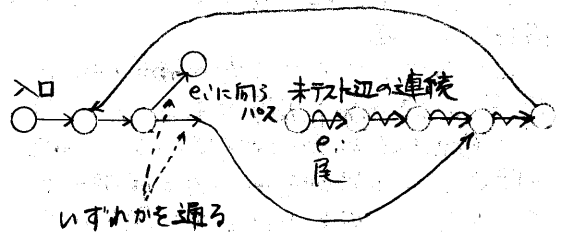 入口
eiに向う
パス
未テスト辺の連続
ei
尾
いずれかを通る